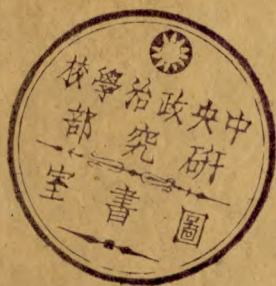 中央政治學校
研究部
圖書室